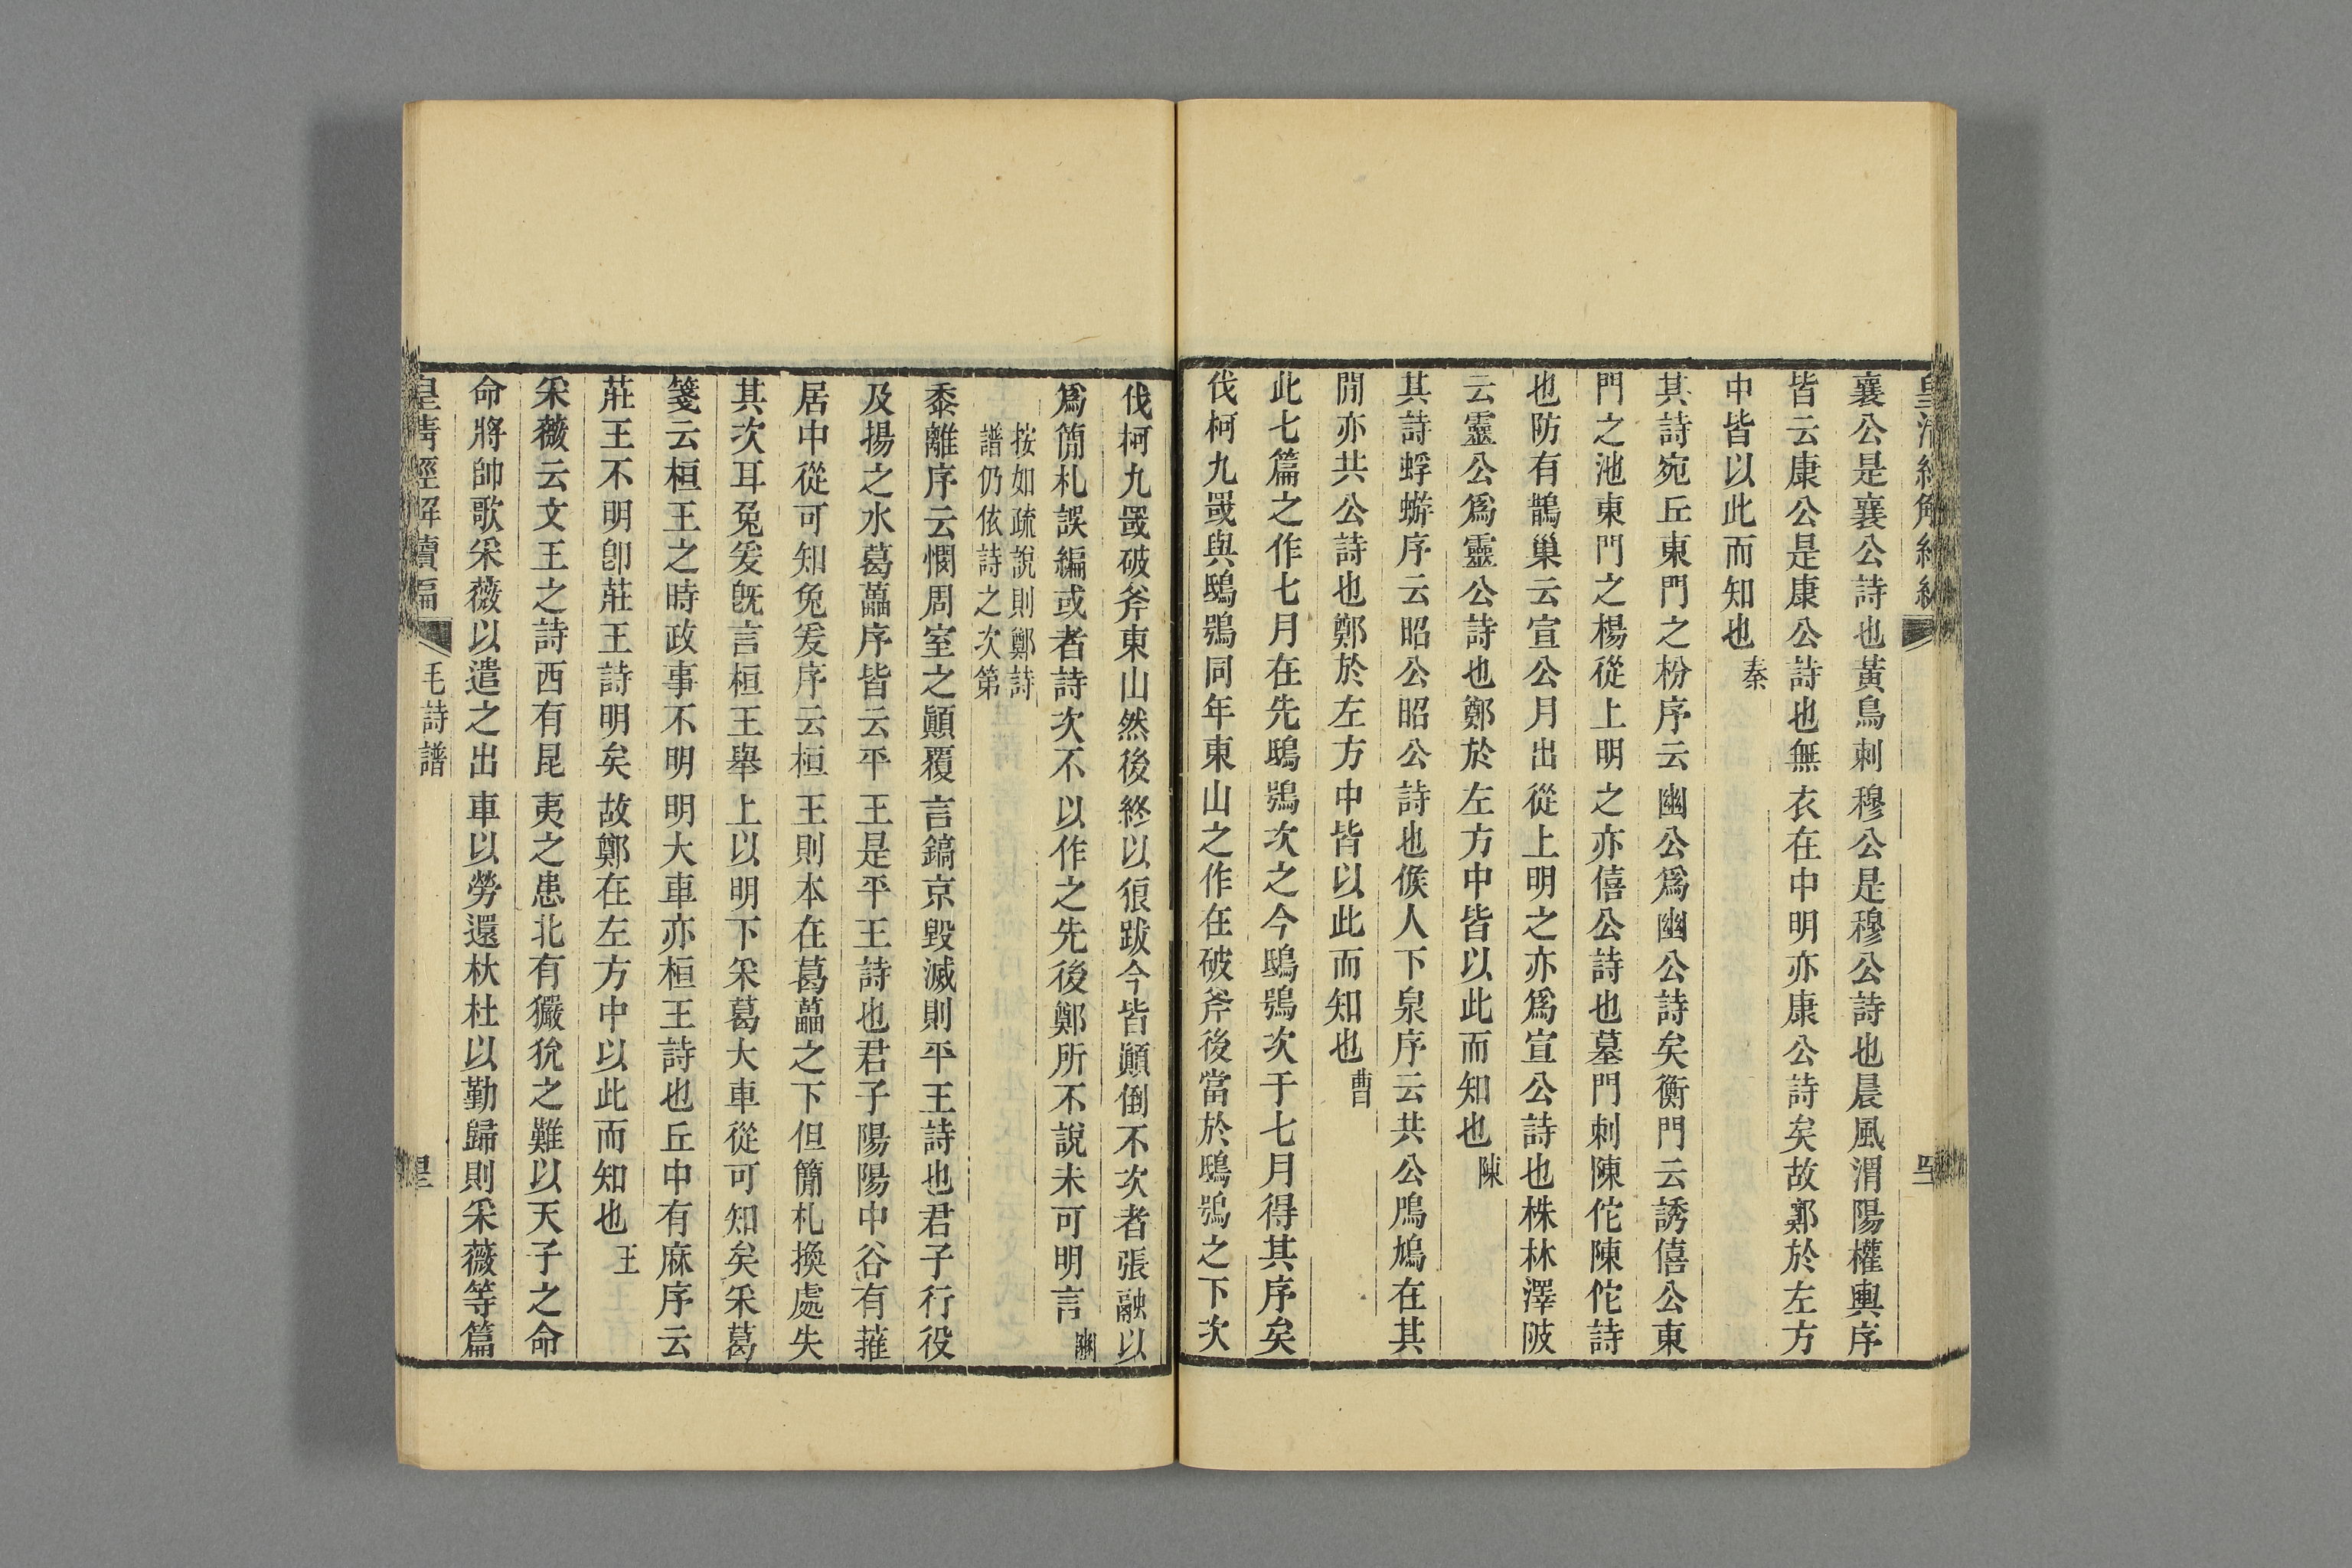 襄公是襄公詩也黃鳥刺穆公是穆公詩也晨風渭陽權輿序
皆云康公是康公詩也無衣在中明亦康公詩矣故鄭於左方
中皆以此而知也秦
其詩宛丘東門之枌序云幽公爲幽公詩矣衡門云誘僖公東
門之池東門之楊從上明之亦僖公詩也墓門刺陳佗陳佗詩
也防有鵲巢云宣公月出從上明之亦爲宣公詩也株林澤陂
云靈公爲靈公詩也鄭於左方中皆以此而知也陳
其詩蜉蝣序云昭公昭公詩也候人下泉序云共公鳲鳩在其
閒亦共公詩也鄭於左方中皆以此而知也曹
此七篇之作七月在先鴟鴞次之今鴟鴞次于七月得其序矣
伐柯九罭與鴟鴞同年東山之作在破斧後當於鴟鴞之下次
伐柯九罭破斧東山然後終以狼跋今皆顚倒不次者張融以
爲簡札誤編或者詩次不以作之先後鄭所不說未可明言豳
按如疏說則鄭詩
譜仍依詩之次第
黍離序云憫周室之顚覆言鎬京毀滅則平王詩也君子行役
及揚之水葛藟序皆云平王是平王詩也君子陽陽中谷有蓷
居中從可知兔爰序云桓王則本在葛藟之下但簡札換處失
其次耳兔爰旣言桓王舉上以明下采葛大車從可知矣采葛
箋云桓王之時政事不明明大車亦桓王詩也丘中有麻序云
莊王不明卽莊王詩明矣故鄭在左方中以此而知也王
采薇云文王之詩西有昆夷之患北有玁狁之難以天子之命
命將帥歌采薇以遣之出車以勞還杕杜以勤歸則采薇等篇
皇淸經解續編
毛詩譜